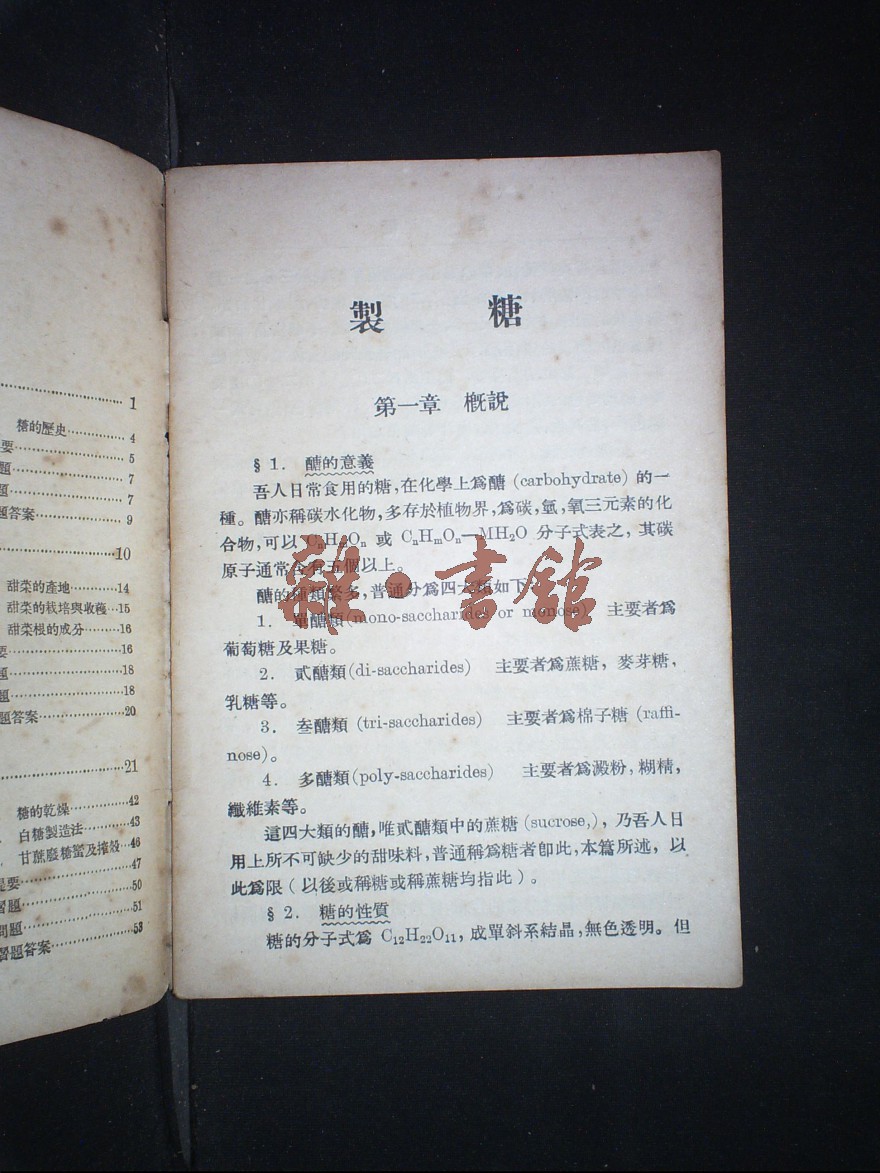 1
糖的歷史 4
要 5
題 7
題 7
題答案 9
10
甜菜的產地 14
甜菜的栽培與收穫 15
甜菜根的成分 16
要 16
題 18
題 18
題答案 20
21
糖的乾燥 42
白糖製造法 43
甘蔗廢糖蜜及搾殼 46
提要 47
習題 50
問題 51
習題答案 53
製 糖
第一章 概說
§ 1. 醣的意義
吾人日常食用的糖,在化學上爲醣 (carbohydrate) 的一
種。醣亦稱碳水化物,多存於植物界,爲碳,氫,氧三元素的化
合物,可以 CnH2nOn 或 CnHmOn—MH2O 分子式表之, 其碳
原子通常含有五個以上。
醣的種類繁多,普通分爲四大類如下
1. 單醣類(mono-saccharides or monose) 主要者爲
葡萄糖及果糖。
2. 貳醣類(di-saccharides) 主要者爲蔗糖, 麥芽糖,
乳糖等。
3. 叁醣類 (tri-saccharides) 主要者爲棉子糖 (raffi-
nose)。
4. 多醣類(poly-saccharides) 主要者爲澱粉, 糊精,
纖維素等。
這四大類的醣,唯貳醣類中的蔗糖 (sucrose,), 乃吾人日
用上所不可缺少的甜味料,普通稱爲糖者卽此,本篇所述, 以
此爲限 ( 以後或稱糖或稱蔗糖均指此 ) 。
§ 2. 糖的性質
糖的分子式爲 C12H22O11, 成單斜系結晶,無色透明。但
雜·書館